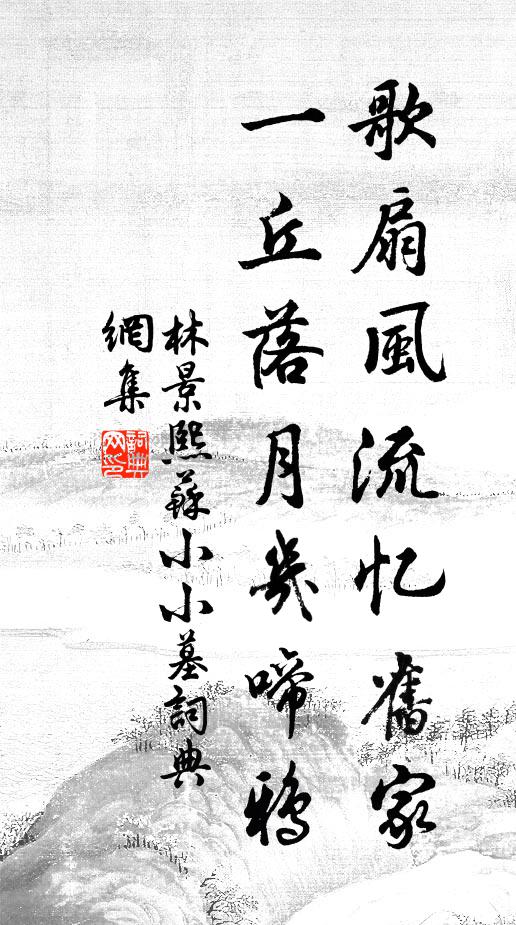 歌扇風流忆舊家
一丘落月幾啼鴉
林景熙蘇小小墓詞典
網集
詞典网印